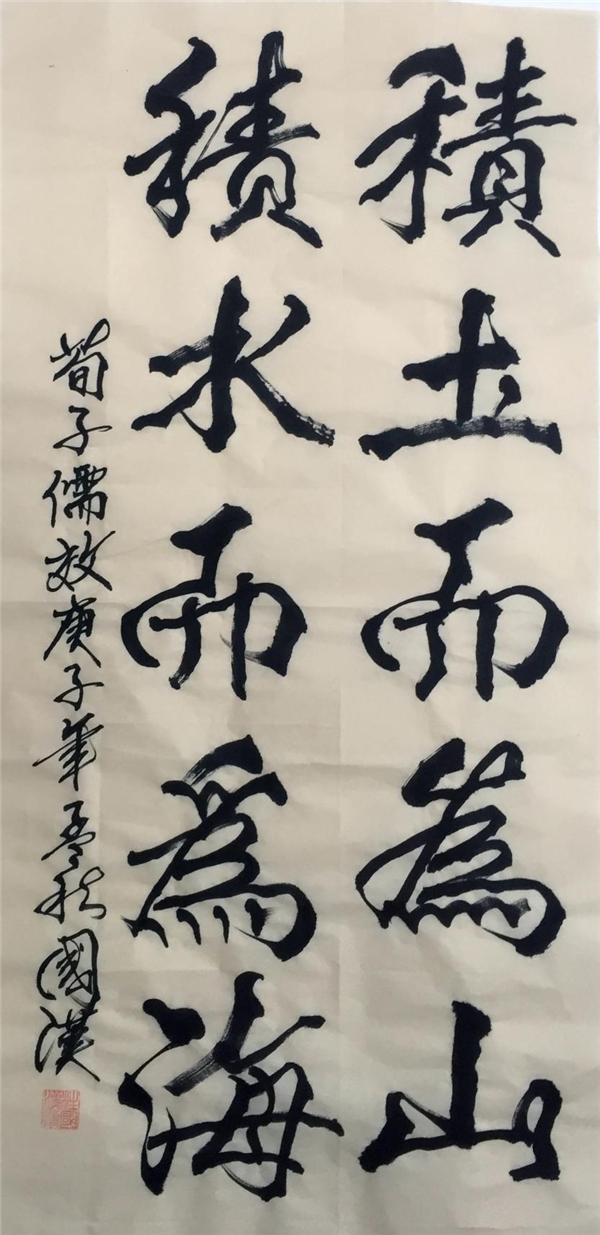 積土而為山
積水而為海
荀子儒效庚子年孟秋國漢